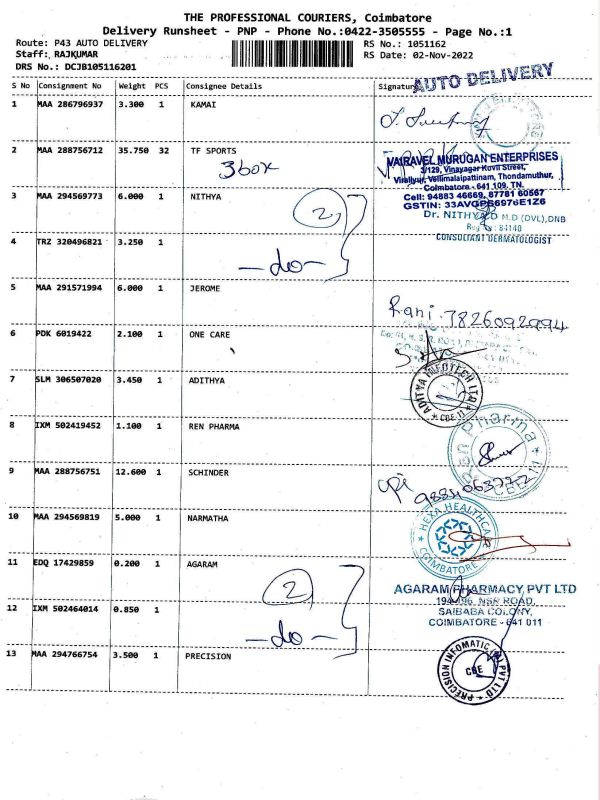 THE PROFESSIONAL COURIERS, Coimbatore
Delivery Runsheet - PNP - Phone No.:0422-3505555 - Page No.:1
Route: P43 AUTO DELIVERY
RS No.: 1051162
Staff: RAJKUMAR
RS Date: 02-Nov-2022
DRS No.: DCJB105116201
AUTO DELIVERY
S No Consignment No Weight PCS Consignee Details Signature
1 MAA 286796937 3.300 1 KAMAI
2 MAA 288756712 35.750 32 TF SPORTS
3box
VAIRAVEL MURUGAN ENTERPRISES
3/129, Vinayagar Kovil Street,
Viraliyur, Vellimalaipattinam, Thondamuthur,
Coimbatore - 641 109. TN.
Cell: 94883 46669, 87781 60567
GSTIN: 33AVGPS6976E1Z6
3 MAA 294569773 6.000 1 NITHYA
2
Dr. NITHYA.D M.D (DVL),DNB
Reg No : 84140
CONSULTANT DERMATOLOGIST
4 TRZ 320496821 3.250 1
-do-
5 MAA 291571994 6.000 1 JEROME
Rani 7826092994
6 PDK 6019422 2.100 1 ONE CARE
7 SLM 306507020 3.450 1 ADITHYA
ADITYA INFOTECH LTD
CBE 11
8 IXM 502419452 1.100 1 REN PHARMA
Ren Pharma
CBE-11
9 MAA 288756751 12.600 1 SCHINDER
10 MAA 294569819 5.000 1 NARMATHA
HEXA HEALTHCARE
COIMBATORE
11 EDQ 17429859 0.200 1 AGARAM
2
AGARAM PHARMACY PVT LTD
194-196, NSR ROAD,
SAIBABA COLONY,
COIMBATORE - 641 011
12 IXM 502464014 0.850 1
-do-
13 MAA 294766754 3.500 1 PRECISION
PRECISION INFOMATIC (M) PVT LTD
CBE